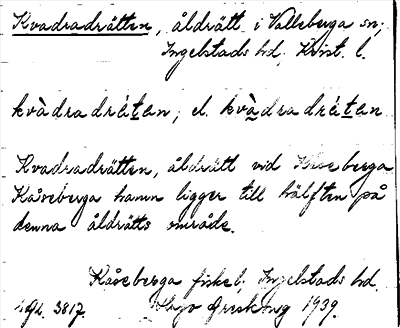 Kvadradrätten, åldrätt i Valleberga sn;
Ingelstads hd, Krist. l.
kvàdradrétan; el. kvàdradrétan
Kvadradrätten, åldrätt vid Kåseberga
Kåseberga hamn ligger till hälften på
denna åldrätts område.
Kåseberga fiskel. Ingelstads hd.
3817. 1939.